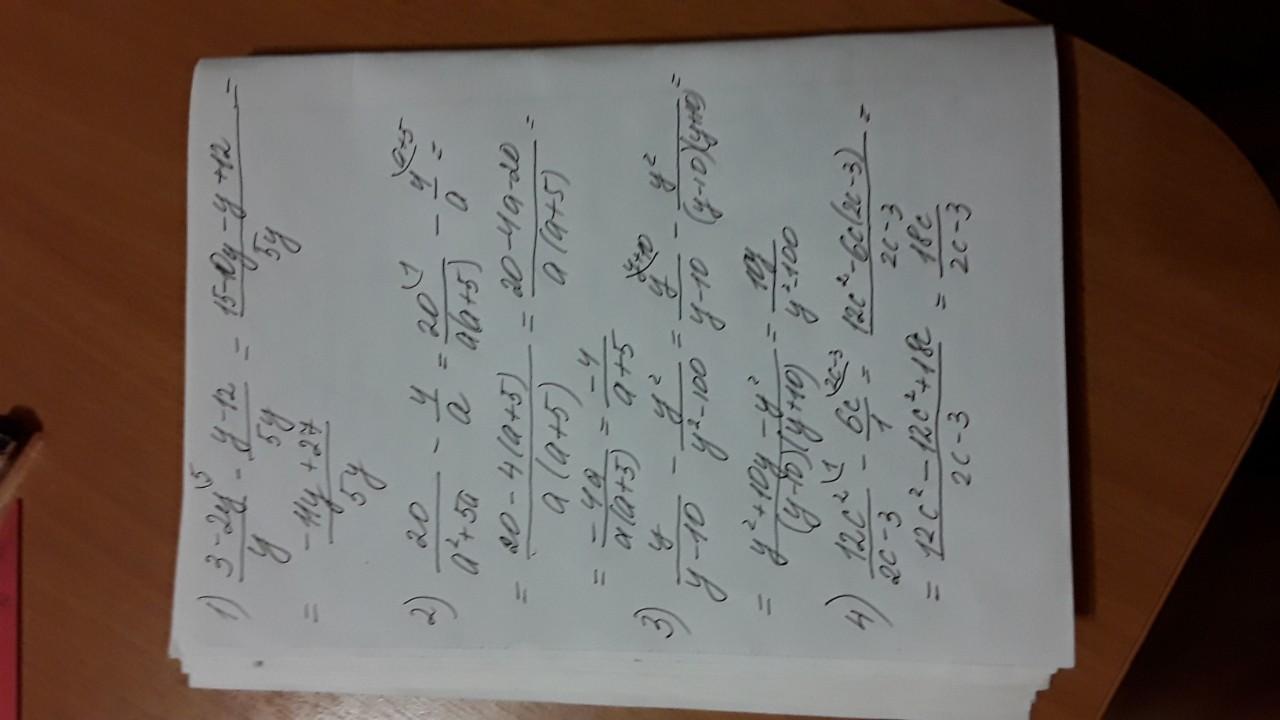 1) (3-2y)/y \5 - (y-12)/5y = (15-10y-y+12)/5y =
= (-11y+27)/5y
2) 20/(a²+5a) - 4/a = 20/(a(a+5)) \1 - 4/a \a+5 =
= (20-4(a+5))/(a(a+5)) = (20-4a-20)/(a(a+5)) =
= -4a/(a(a+5)) = -4/(a+5)
3) y/(y-10) - y²/(y²-100) = y/(y-10) \y+10 - y²/((y-10)(y+10)) =
= (y²+10y-y²)/((y-10)(y+10)) = 10y/(y²-100)
4) 12c²/(2c-3) \1 - 6c/1 \2c-3 = (12c²-6c(2c-3))/(2c-3) =
= (12c²-12c²+18c)/(2c-3) = 18c/(2c-3)